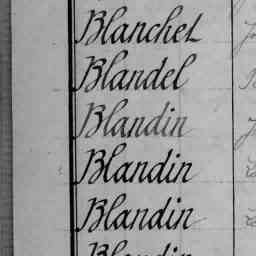 Blanchet
Blandel
Blandin
Blandin
Blandin
Blandin